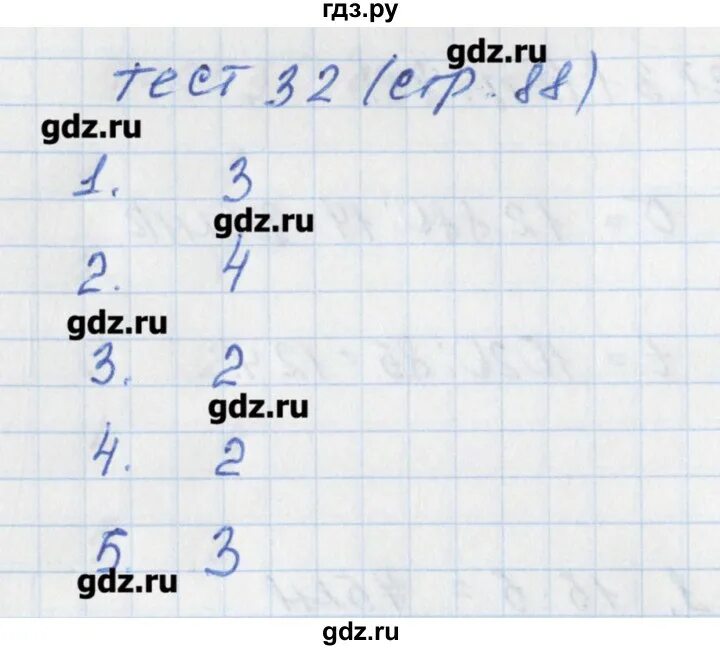 гдз.ру
gdz.ru
тест 32 (стр. 88)
gdz.ru
1. 3
gdz.ru
2. 4
gdz.ru
3. 2
gdz.ru
4. 2
5 3
gdz.ru
gdz.ru